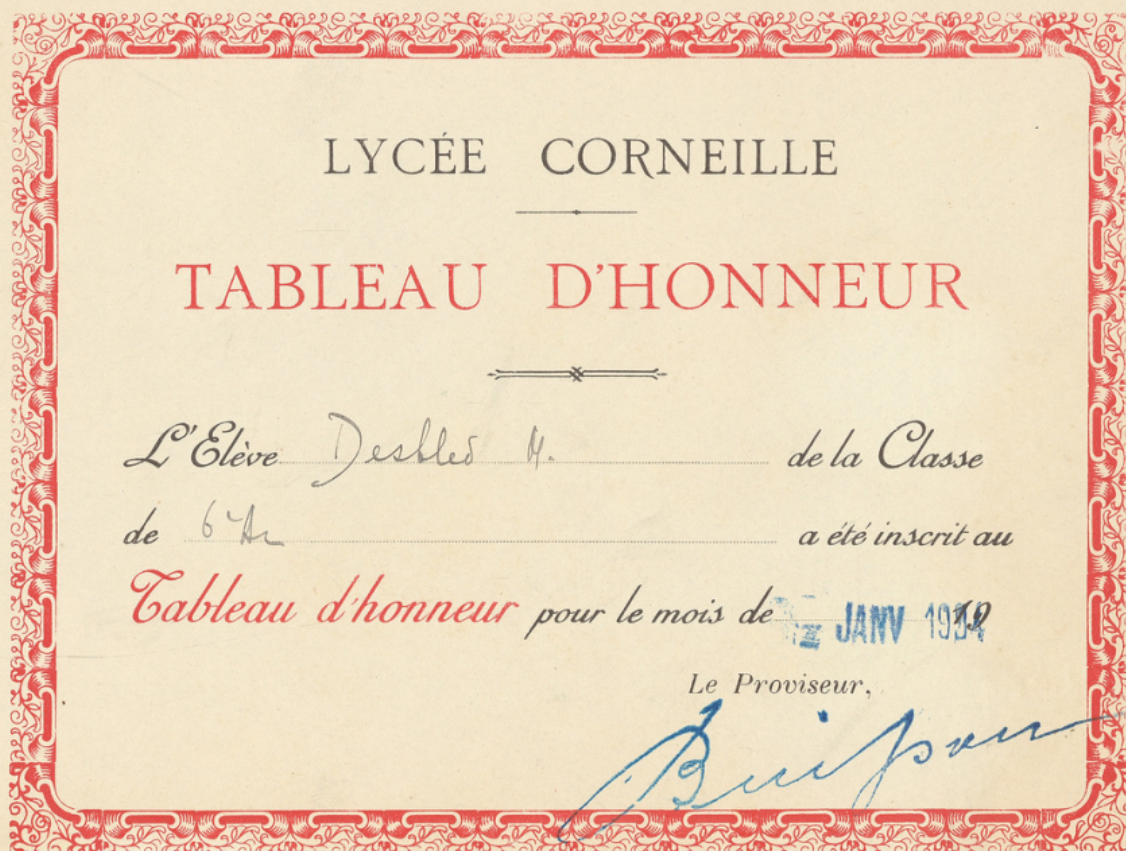 LYCÉE CORNEILLE
TABLEAU D'HONNEUR
L'Elève Desbled M. de la Classe
de 6e a été inscrit au
Tableau d'honneur pour le mois de JANV 19
Le Proviseur,
Buisson